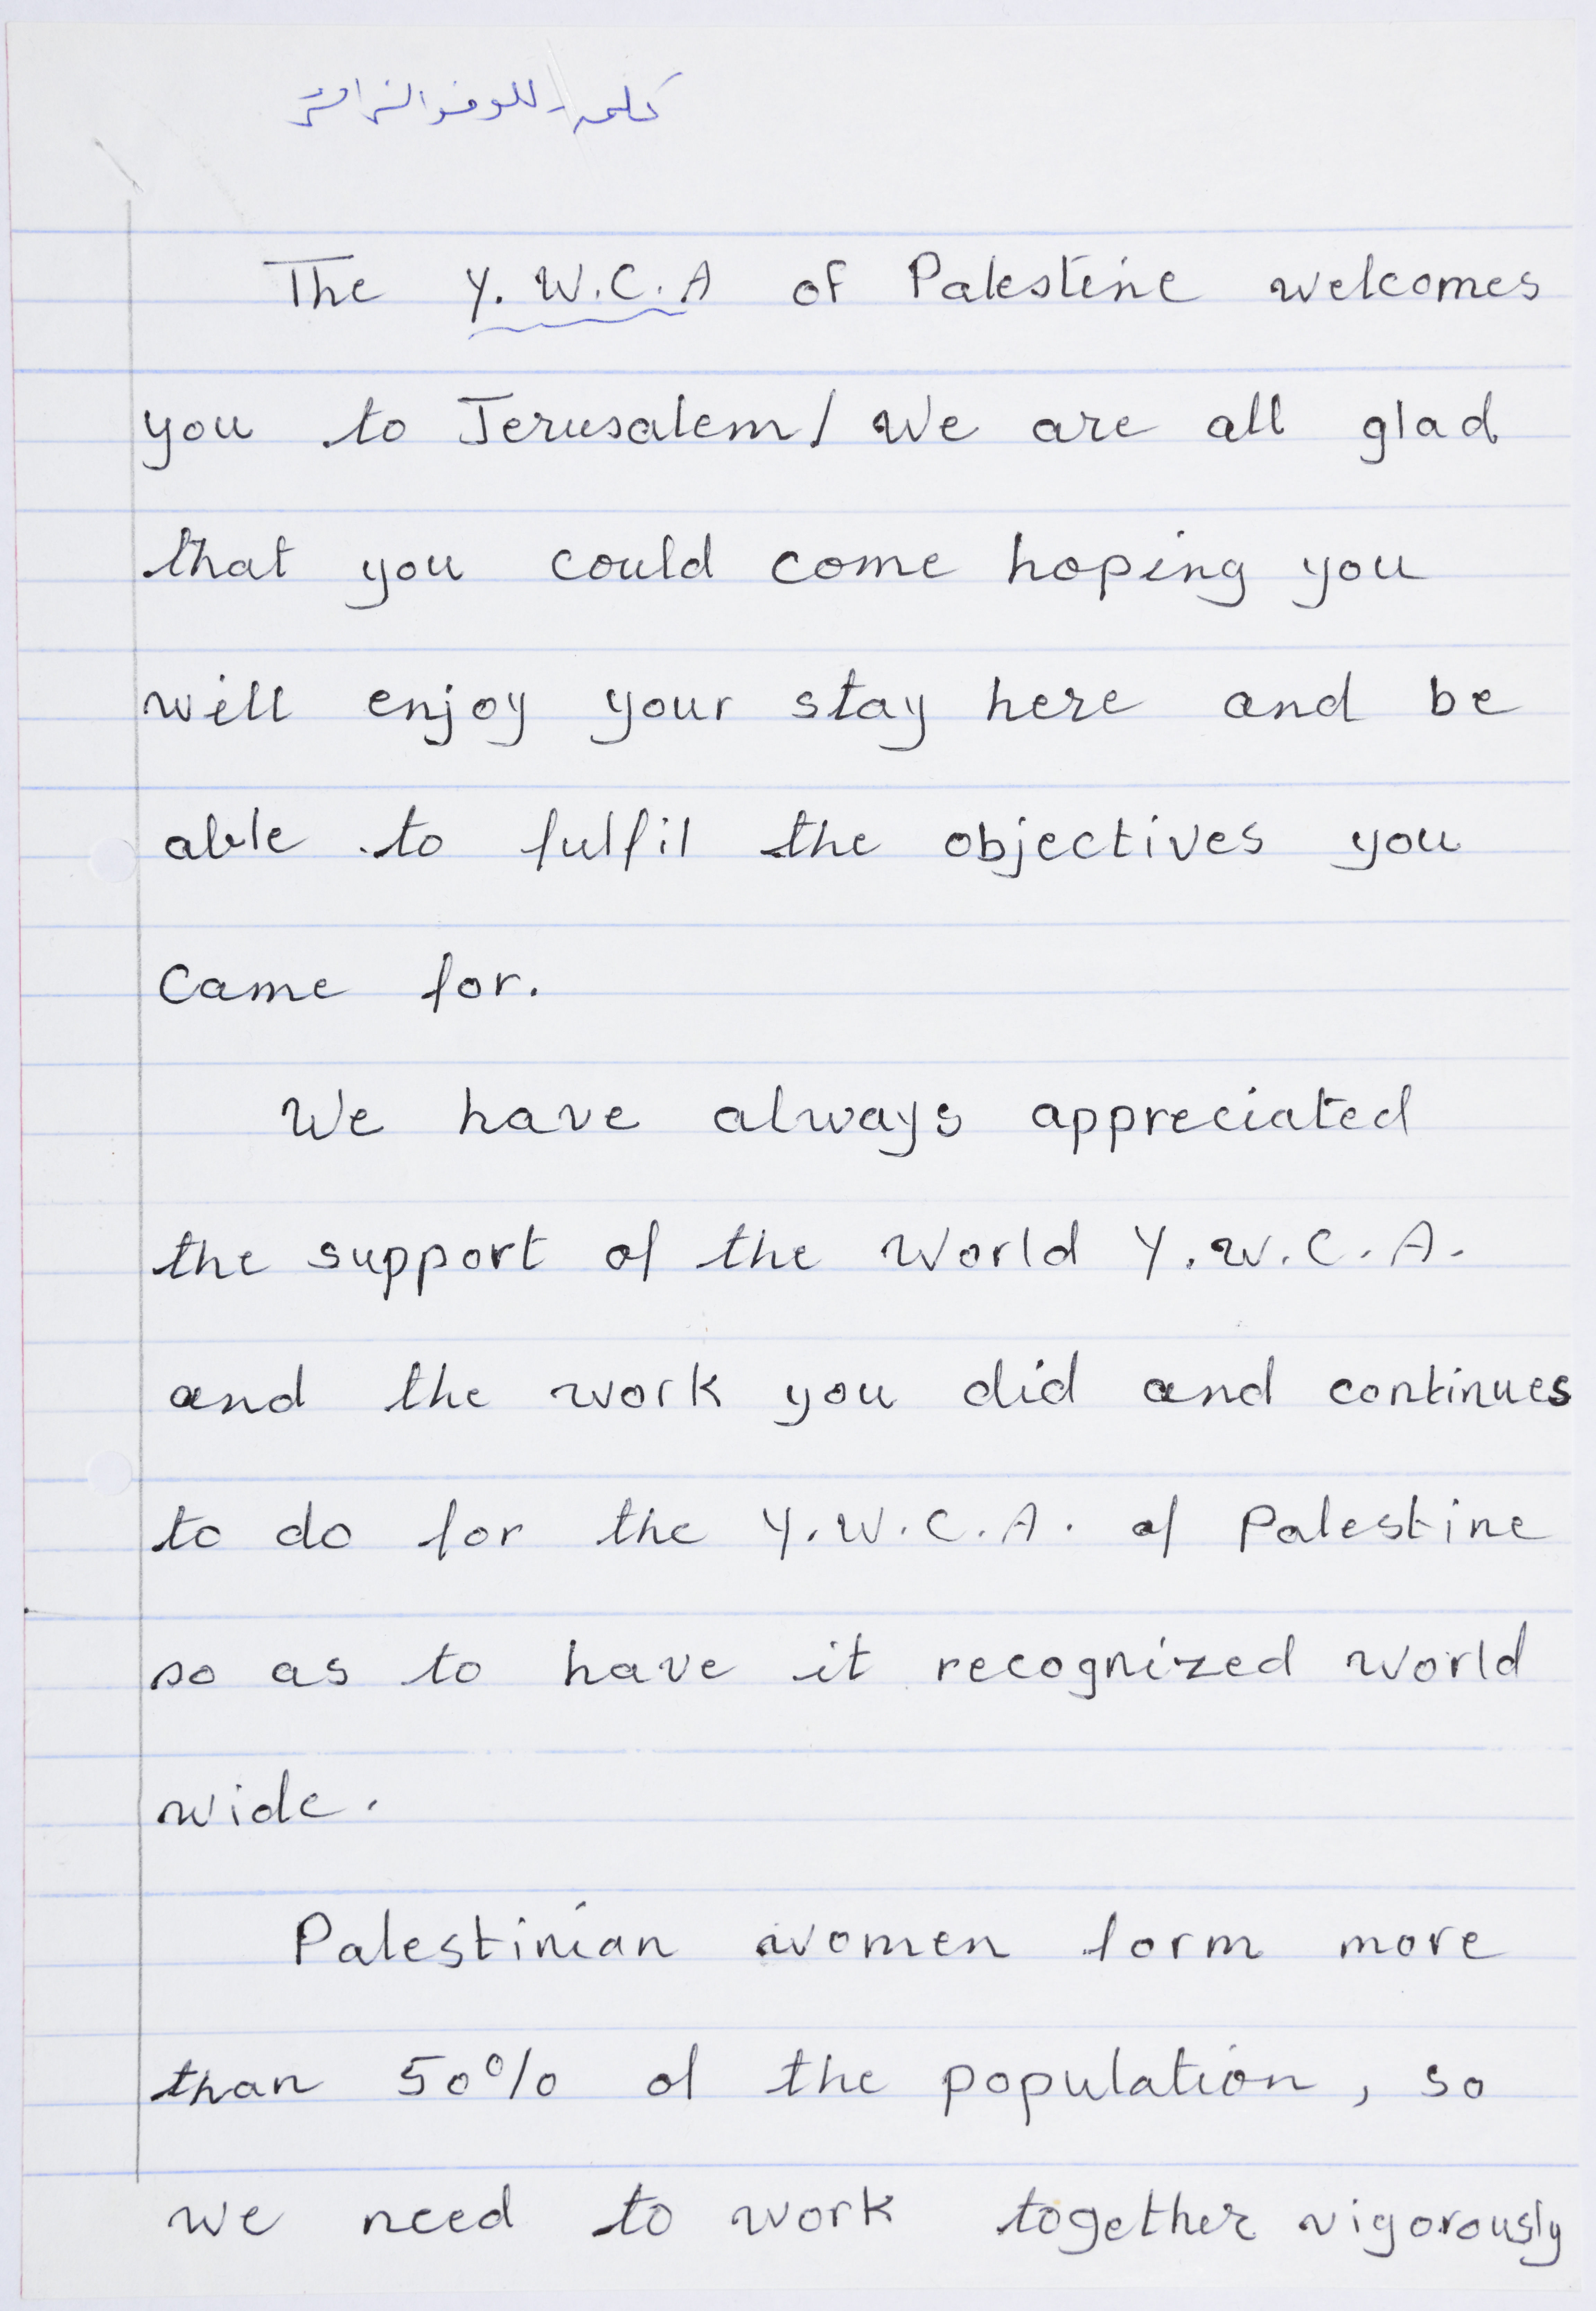 كلمة للوفد الزائر
The Y.W.C.A of Palestine welcomes
you to Jerusalem/ We are all glad
that you could come hoping you
will enjoy your stay here and be
able to fulfil the objectives you
Came for.
We have always appreciated
the support of the World Y.W.C.A.
and the work you did and continues
to do for the Y.W.C.A. of Palestine
so as to have it recognized world
wide.
Palestinian women form more
than 50% of the population, so
we need to work together vigorously